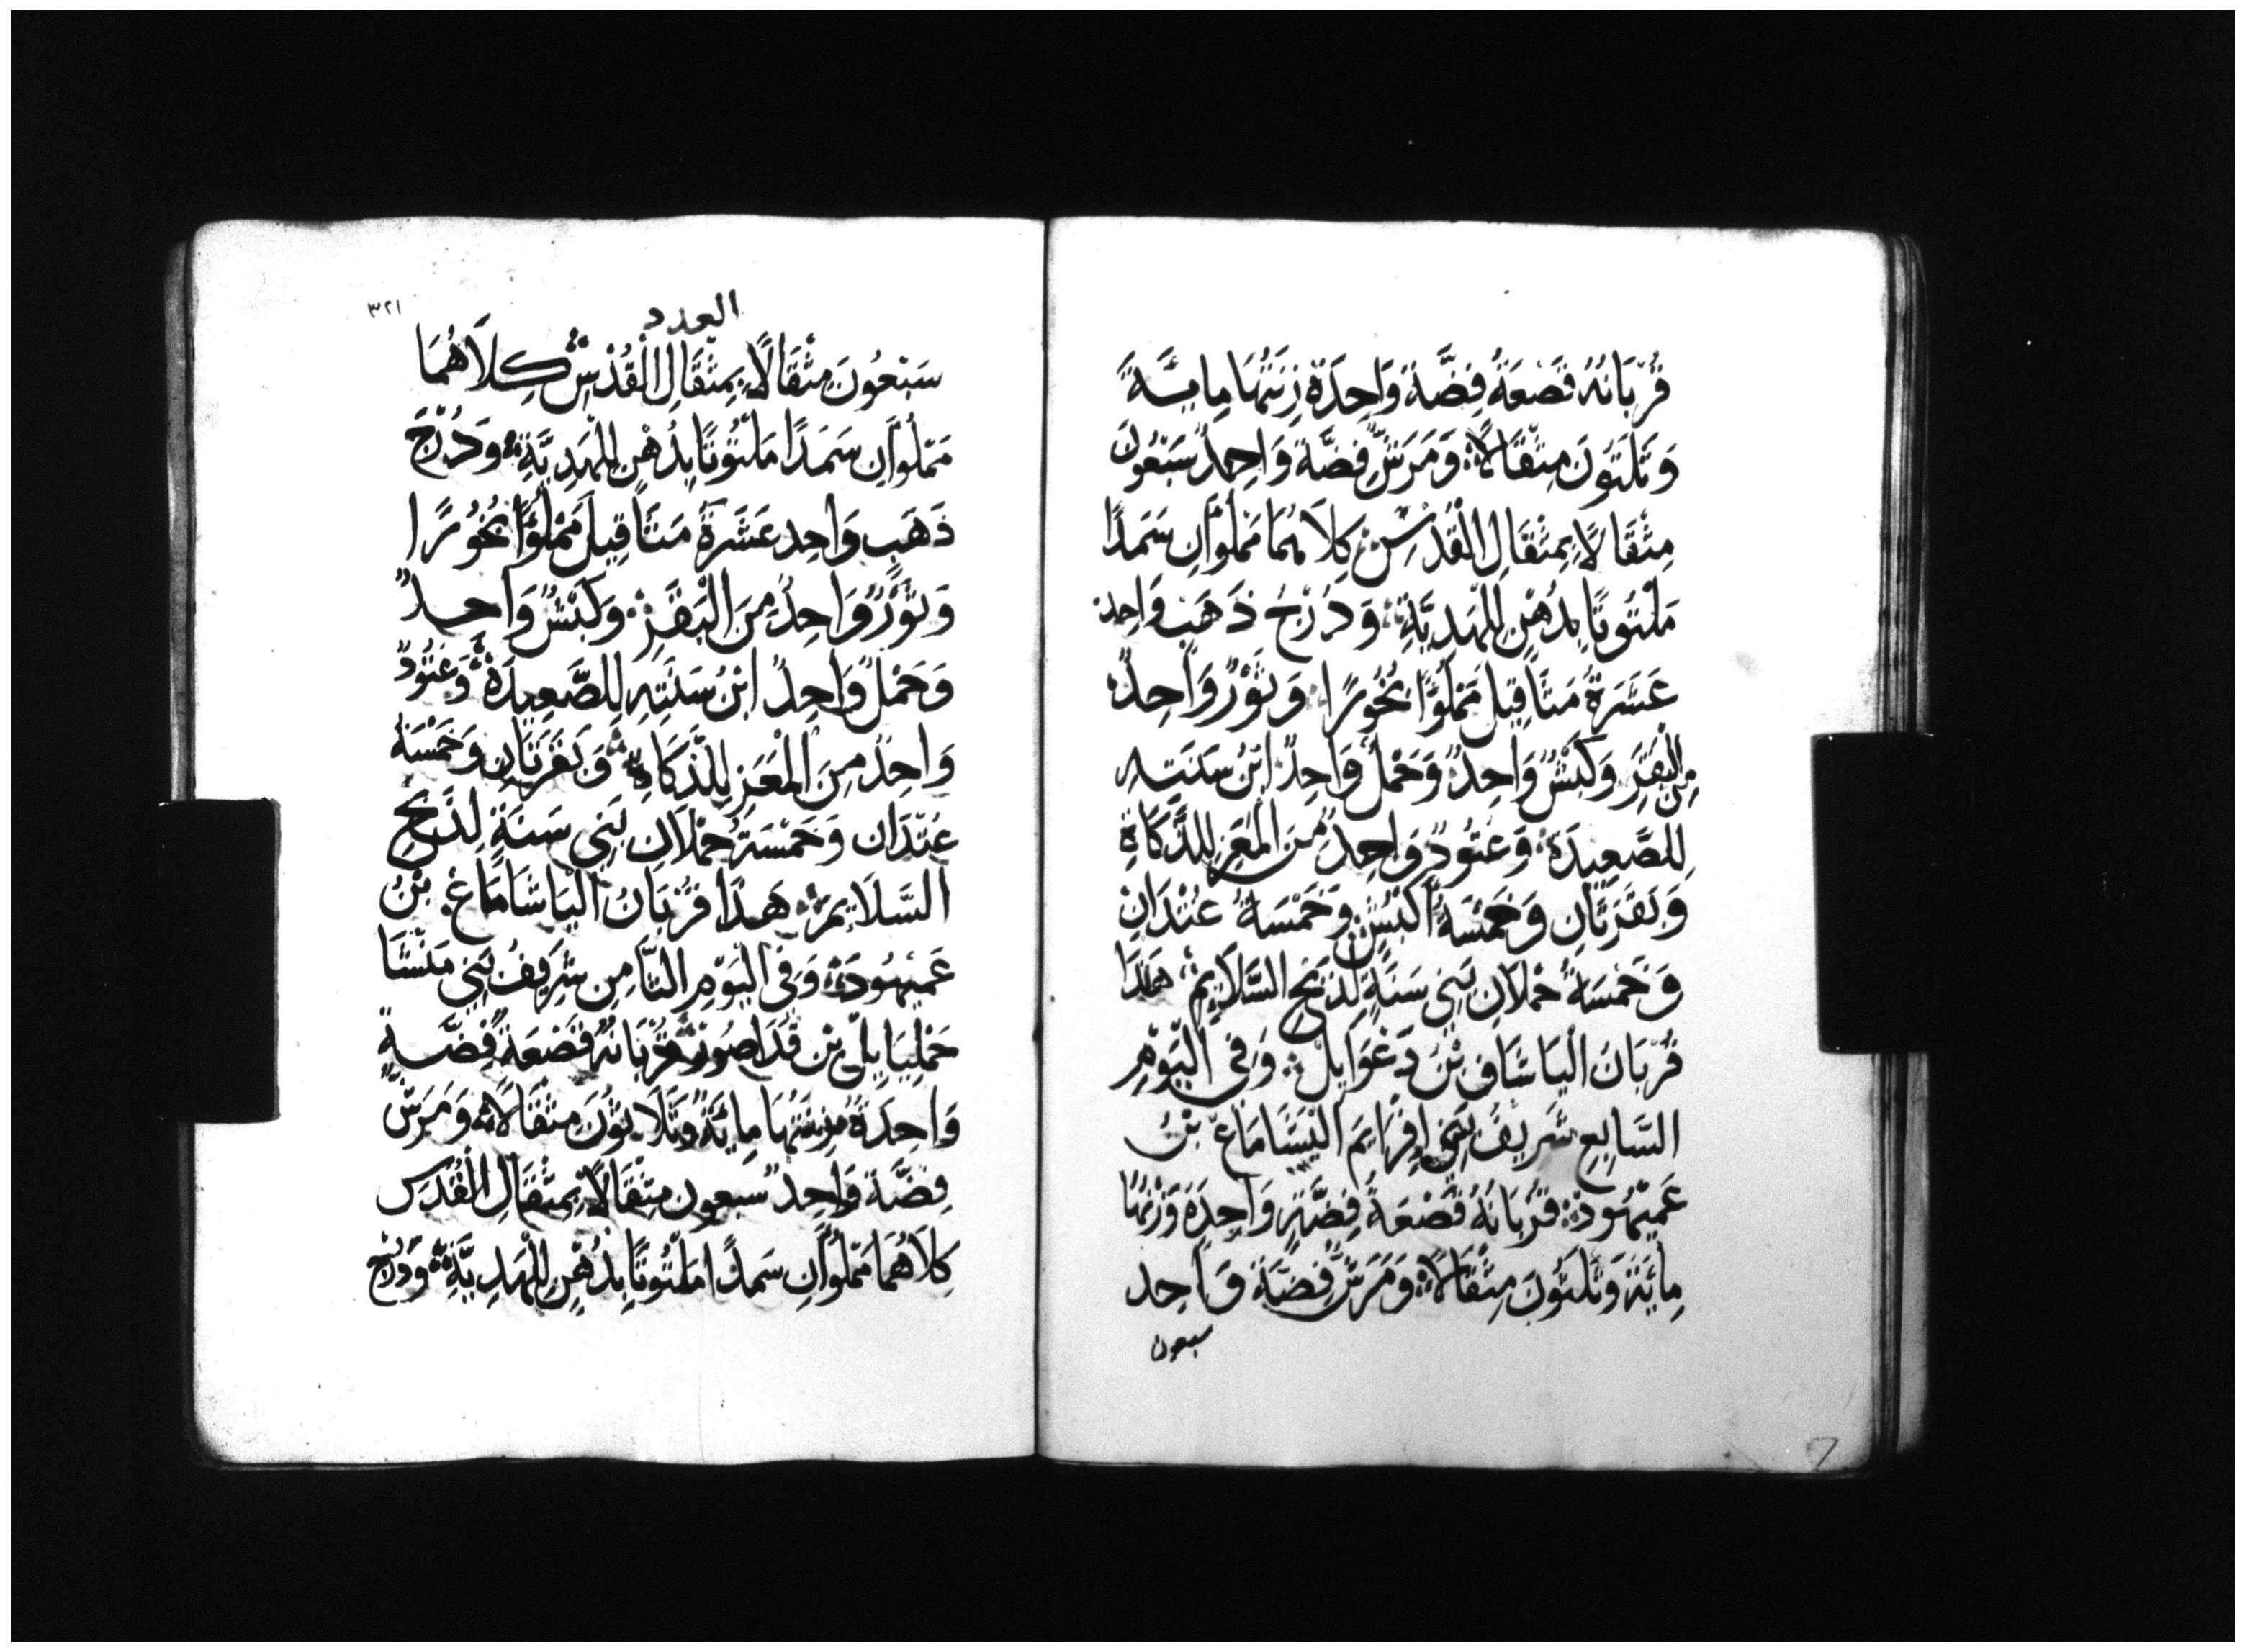 قُرْبَانُهُ قَصْعَةُ فِضَّةٍ وَاحِدَةٌ زِنَتُهَا مِايَةٌ
وَثَلَثُونَ مِثْقَالًا وَمَرَشُّ فِضَّةٍ وَاحِدٌ سَبْعُونَ
مِثْقَالًا بِمِثْقَالِ الْقُدْسِ كِلَاهُمَا مَمْلُوَّانِ سَمَدًا
مَلْتُوتًا بِدُهْنٍ لِلْهَدِيَّةِ وَدُرْجُ ذَهَبٍ وَاحِد
عَشَرَةُ مَثَاقِيلَ مَمْلُوًّا بُخُورًا وَثَوْرٌ وَاحِدٌ
مِنَ الْبَقَرِ وَكَبْشٌ وَاحِدٌ وَحَمْلٌ وَاحِدٌ ابْنُ سَنَتِهِ
لِلصَّعِيدَةِ وَعَتُودٌ وَاحِدٌ مِنَ الْمَعَزِ لِلذَّكَاةِ
وَبَقَرَتَانِ وَخَمْسَةُ أَكْبُشٍ وَخَمْسَةُ عِتْدَانٍ
وَخَمْسَةُ حُمْلَانٍ بَنِي سَنَةٍ لِذَبْحِ السَّلَايِمْ هَذَا
قُرْبَانَ الْيَاشَافِ بْنَ دَعَوَايِلْ وَفِي الْيَوْمِ
السَّابِعِ شَرِيفُ بَنِي افِرَايِمَ الْيَشَامَاعَ بْنُ
عَمِيْهُودَ قُرْبَانُهُ قَصْعَةُ فِضَّةٍ وَاحِدَةٌ وَزْنُهَا
مِايَةٌ وَثَلَثُونَ مِثْقَالًا وَمَرَشُّ فِضَّةٍ وَاحِد
سبعون
العدد
٣٢١
سَبْعُونَ مِثْقَالًا بِمِثْقَالِ الْقُدْسِ كِلَاهُمَا
مَمْلُوأَنِ سَمَدًا مَلْتُوتًا بِدُهْنٍ لِلْهَدِيَّةِ وَدُرْجُ
ذَهَبٍ وَاحِد عَشَرَةُ مَثَاقِيلَ مَمْلُؤًا بُخُورًا
وَثَوْرٌ وَاحِدٌ مِنَ الْبَقَرِ وَكَبْشٌ وَاحِدٌ
وَحَمْلٌ وَاحِدٌ ابْنُ سَنَتِهِ لِلصَّعِيدَةِ وَعَتُودٌ
وَاحِدٌ مِنَ الْمَعَزِ لِلذَّكَاةِ وَبَقَرَتَانِ وَخَمْسَةُ
عِتْدَانٍ وَخَمْسَةُ حُمْلَانٍ بَنِي سَنَةٍ لِذَبْحِ
السَّلَايِمْ هَذَا قُرْبَانُ الْيَاشَامَاعَ بْنُ
عَمِيْهُودَ وَفِي الْيَوْمِ الثَّامِنِ شَرِيفُ بَنِي مَنَشَّا
حَمْلِيَايِلُ بْن فَدَاصُور قُرْبَانُهُ قَصْعَةُ فِضَّةٍ
وَاحِدَةٌ زِنَتُهَا مِايَةٌ وَثَلَاثُونَ مِثْقَالًا وَمَرَشُّ
فِضَّةٍ وَاحِدٌ سبعون مِثْقَالًا بِمِثْقَالِ الْقُدْسِ
كِلَاهُمَا مَمْلُوأَنِ سَمَدًا مَلْتُوتًا بِدُهْنٍ لِلْهَدِيَّةِ وَدُرْجُ